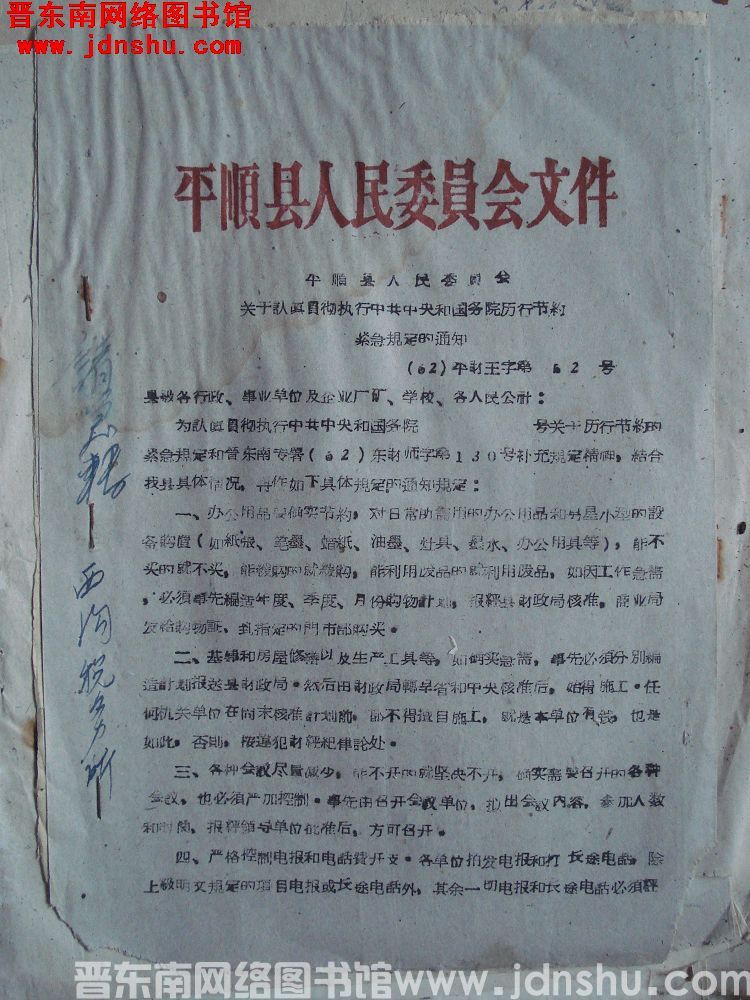 晋东南网络图书馆
www.jdnshu.com
平順县人民委員会文件
平順县人民委員会
关于认眞貫彻执行中共中央和国务院厉行节約
紧急規定的通知
(62)平財王字第62号
县級各行政、事业单位及企业厂矿、学校、各人民公社：
为认眞貫彻执行中共中央和国务院 号关于厉行节約的
紧急規定和晋东南专署(62)东財师字第130号补充規定精神，結合
我县具体情况，再作如下具体規定的通知規定：
一、办公用品要确实节約，对日常所需用的办公用品和另星小型的設
备购置(如紙張、笔墨、蜡紙、油墨、灶具、墨水、办公用具等)，能不
买的就不买，能緩购的就緩购，能利用废品的就利用废品，如因工作急需
，必須事先編造年度、季度、月份购物計划，报經县財政局核准，商业局
发給购物証，到指定的門市部购买。
二、基建和房屋修繕以及生产工具等，如确实急需，事先必須分別編
造計划报送县財政局。然后由財政局轉呈省和中央核准后，始得施工。任
何机关单位在尚未核准計划前，都不得擅自施工，就是本单位有錢，也是
如此，否則，按違犯財經紀律論处。
三、各种会議尽量减少，能不开的就坚决不开，确实需要召开的各种
会議，也必須严加控制。事先由召开会議单位，拟出会議内容，参加人数
和时間，报經領导单位批准后，方可召开。
四、严格控制电报和电話費开支。各单位拍发电报和打长途电話，除
上級明文規定的項目电报或长途电話外，其余一切电报和长途电話必須經
西沟税务所
晋东南网络图书馆www.jdnshu.com